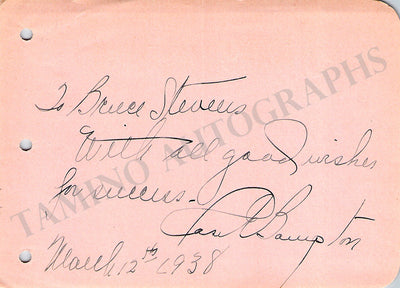 To Bruce Stevens
With all good wishes
for success -
Rose Bampton
March 12th 1938
TAMINO AUTOGRAPHS